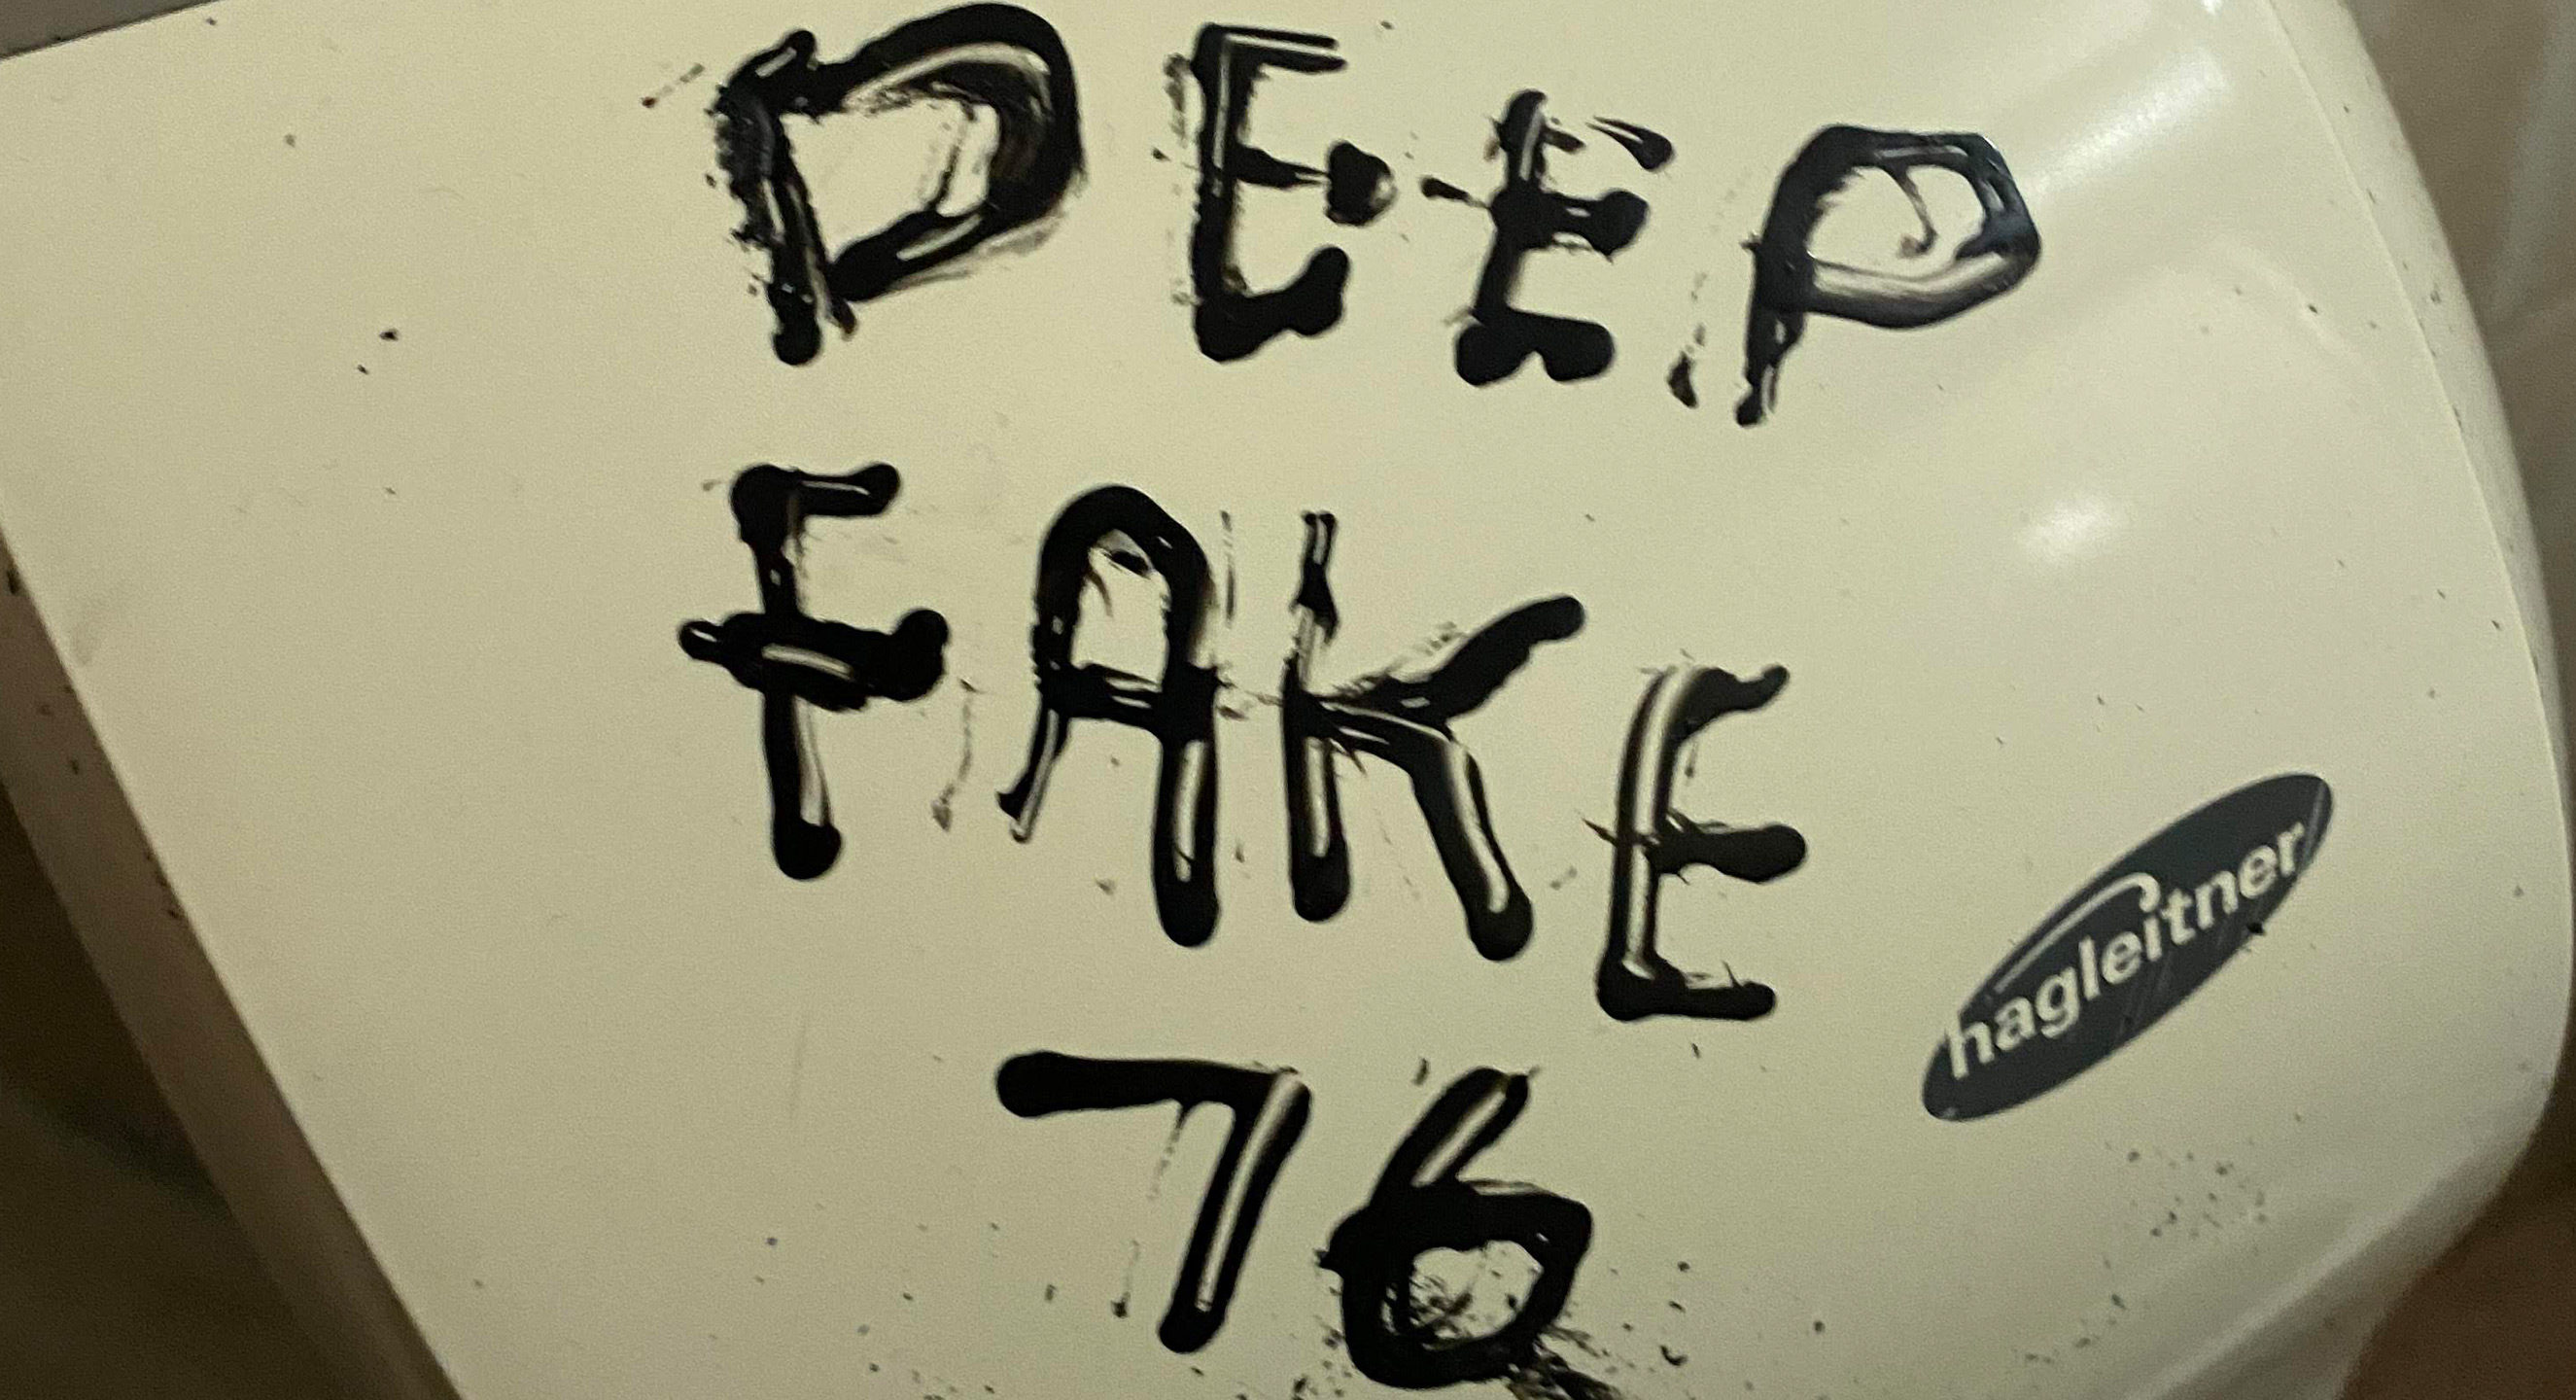 DEEP
FAKE
76
hagleitner